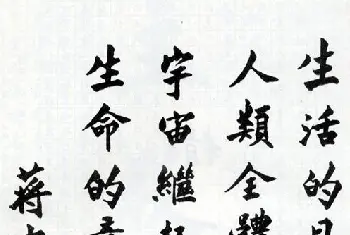 生活的
人類全體
宇宙繼
生命的
蔣